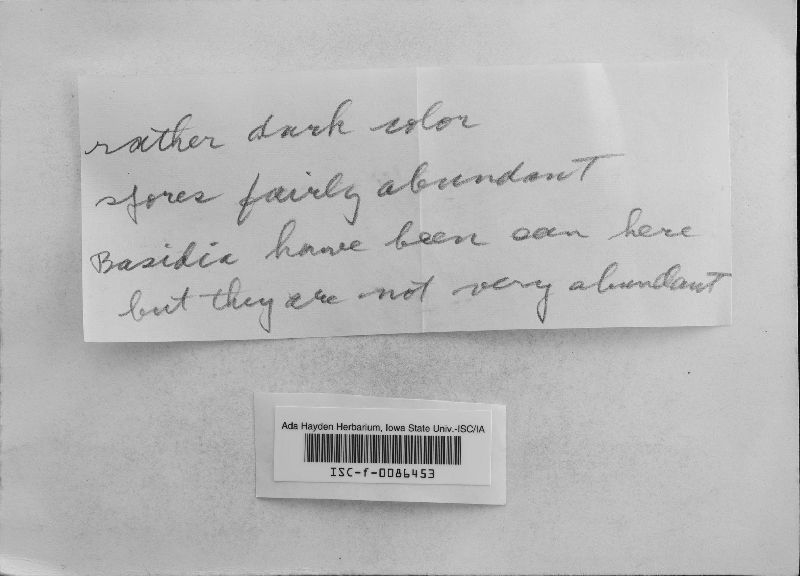 rather dark color
spores fairly abundant
Basidia have been seen here
but they are not very abundant
Ada Hayden Herbarium, Iowa State Univ.-ISC/IA
ISC-f-0086453